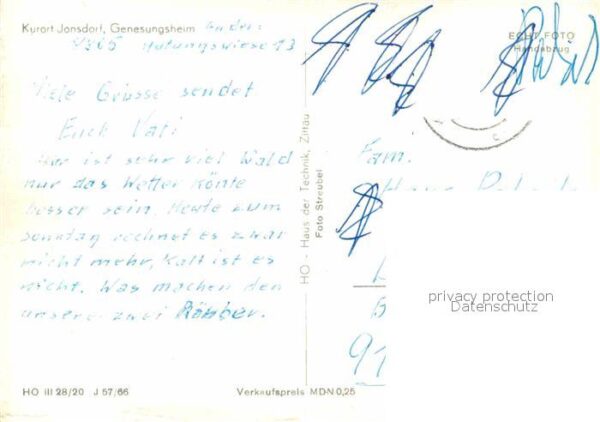 Kurort Jonsdorf, Genesungsheim An der
Hutungswiese 13
ECHT FOTO
Handabzug
Viele Grüsse sendet
Euch Vati
Hier ist sehr viel Wald
nur das Wetter könte
besser sein. Heute zum
Sonntag rechnet es zwar
nicht mehr, Kalt ist es
nicht. Was machen den
unsere zwei Räuber.
HO - Haus der Technik, Zittau
Foto Streubel
Fam.
91
privacy protection
Datenschutz
HO III 28/20 J 57/66
Verkaufspreis MDN 0,25